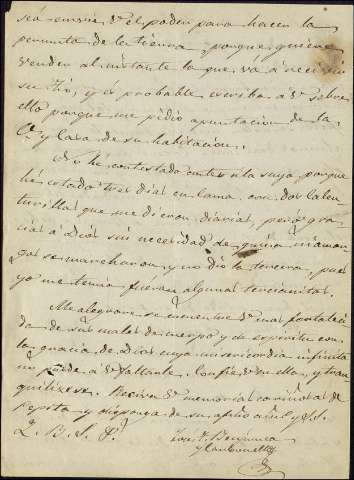 se á enviar Vd el poder para hacer la
permuta de la tierra, porque quiere
vender al instante la que va á recibir
su tio, y es probable escriba á Vd sobre
ello porque me pidió apuntacion de la
Ce y casa de su habitacion.
No hé contestado antes á la suya porque
hé estado tres dias en cama con dos calen-
turillas que me dieron diarias, pero gra-
cias á Dios sin necesidad de quina ni aman-
gos se marcharon, y no dió la tercera, pues
yo me temia fueran algunas tercianitas.
Me alegrare se encuentre Vd mas fortaleci-
da de sus males de cuerpo y de espiritu con
la gracia de Dios cuya misericordia infinita
no puede á Vd faltarle. Confie Vd en ella, y tran-
quilizese. Reciva Vd memorias cariñosas de
Pepita y disponga de su afmo amigo y S.S.
Q. B. S. P.
José